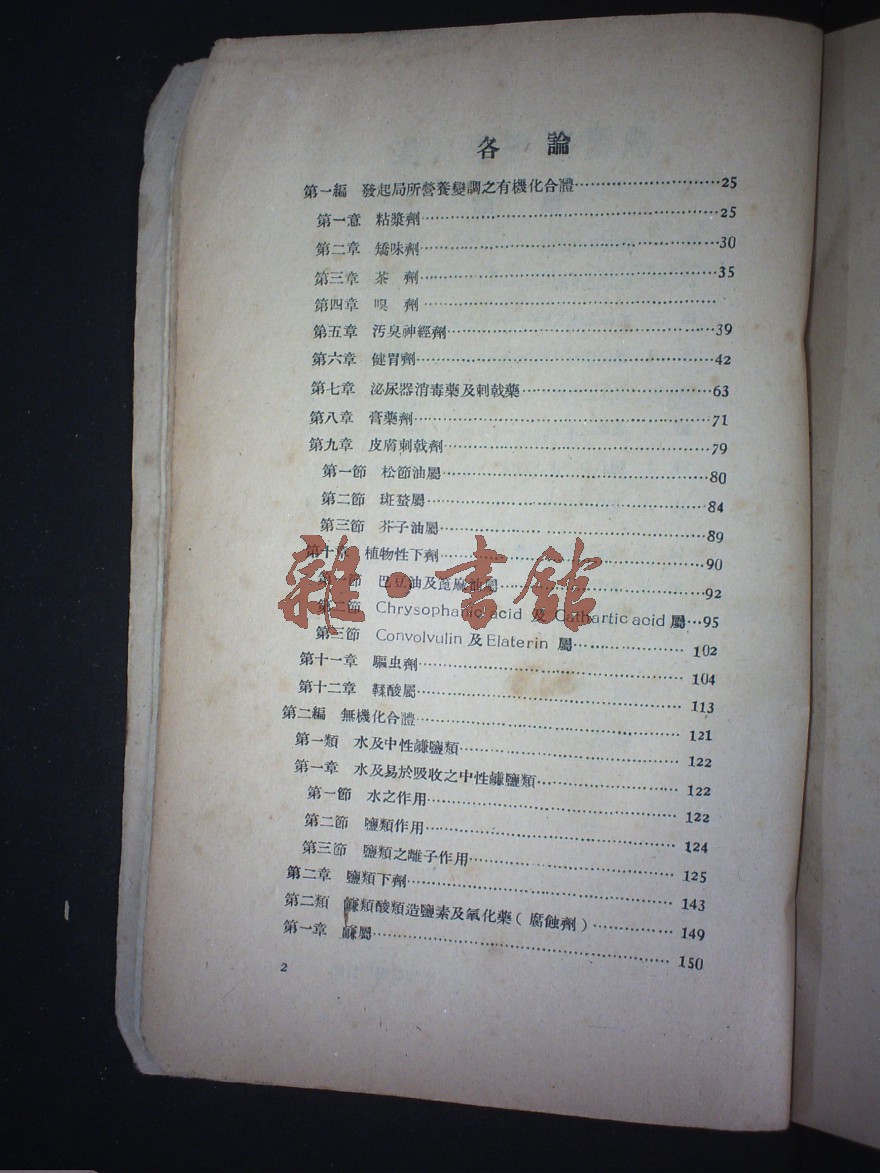 各 論
第一編 發起局所營養變調之有機化合體…25
第一意 粘漿劑…25
第二章 矯味劑…30
第三章 茶 劑…35
第四章 嗅 劑…
第五章 汚臭神經劑…39
第六章 健胃劑…42
第七章 泌尿器消毒藥及刺戟藥…63
第八章 膏藥劑…71
第九章 皮膚刺戟劑…79
第一節 松節油屬…80
第二節 斑蝥屬…84
第三節 芥子油屬…89
第十章 植物性下劑…90
第一節 巴豆油及蓖麻油屬…92
第二節 Chrysophanic acid 及 Cathartic acid 屬…95
第三節 Convolvulin 及 Elaterin 屬…102
第十一章 驅虫劑…104
第十二章 鞣酸屬…113
第二編 無機化合體…121
第一類 水及中性鹻鹽類…122
第一章 水及易於吸收之中性鹻鹽類…122
第一節 水之作用…122
第二節 鹽類作用…124
第三節 鹽類之離子作用…125
第二章 鹽類下劑…143
第二類 鹻類酸類造鹽素及氧化藥（腐蝕劑）…149
第一章 鹻屬…150
2
雜·書館